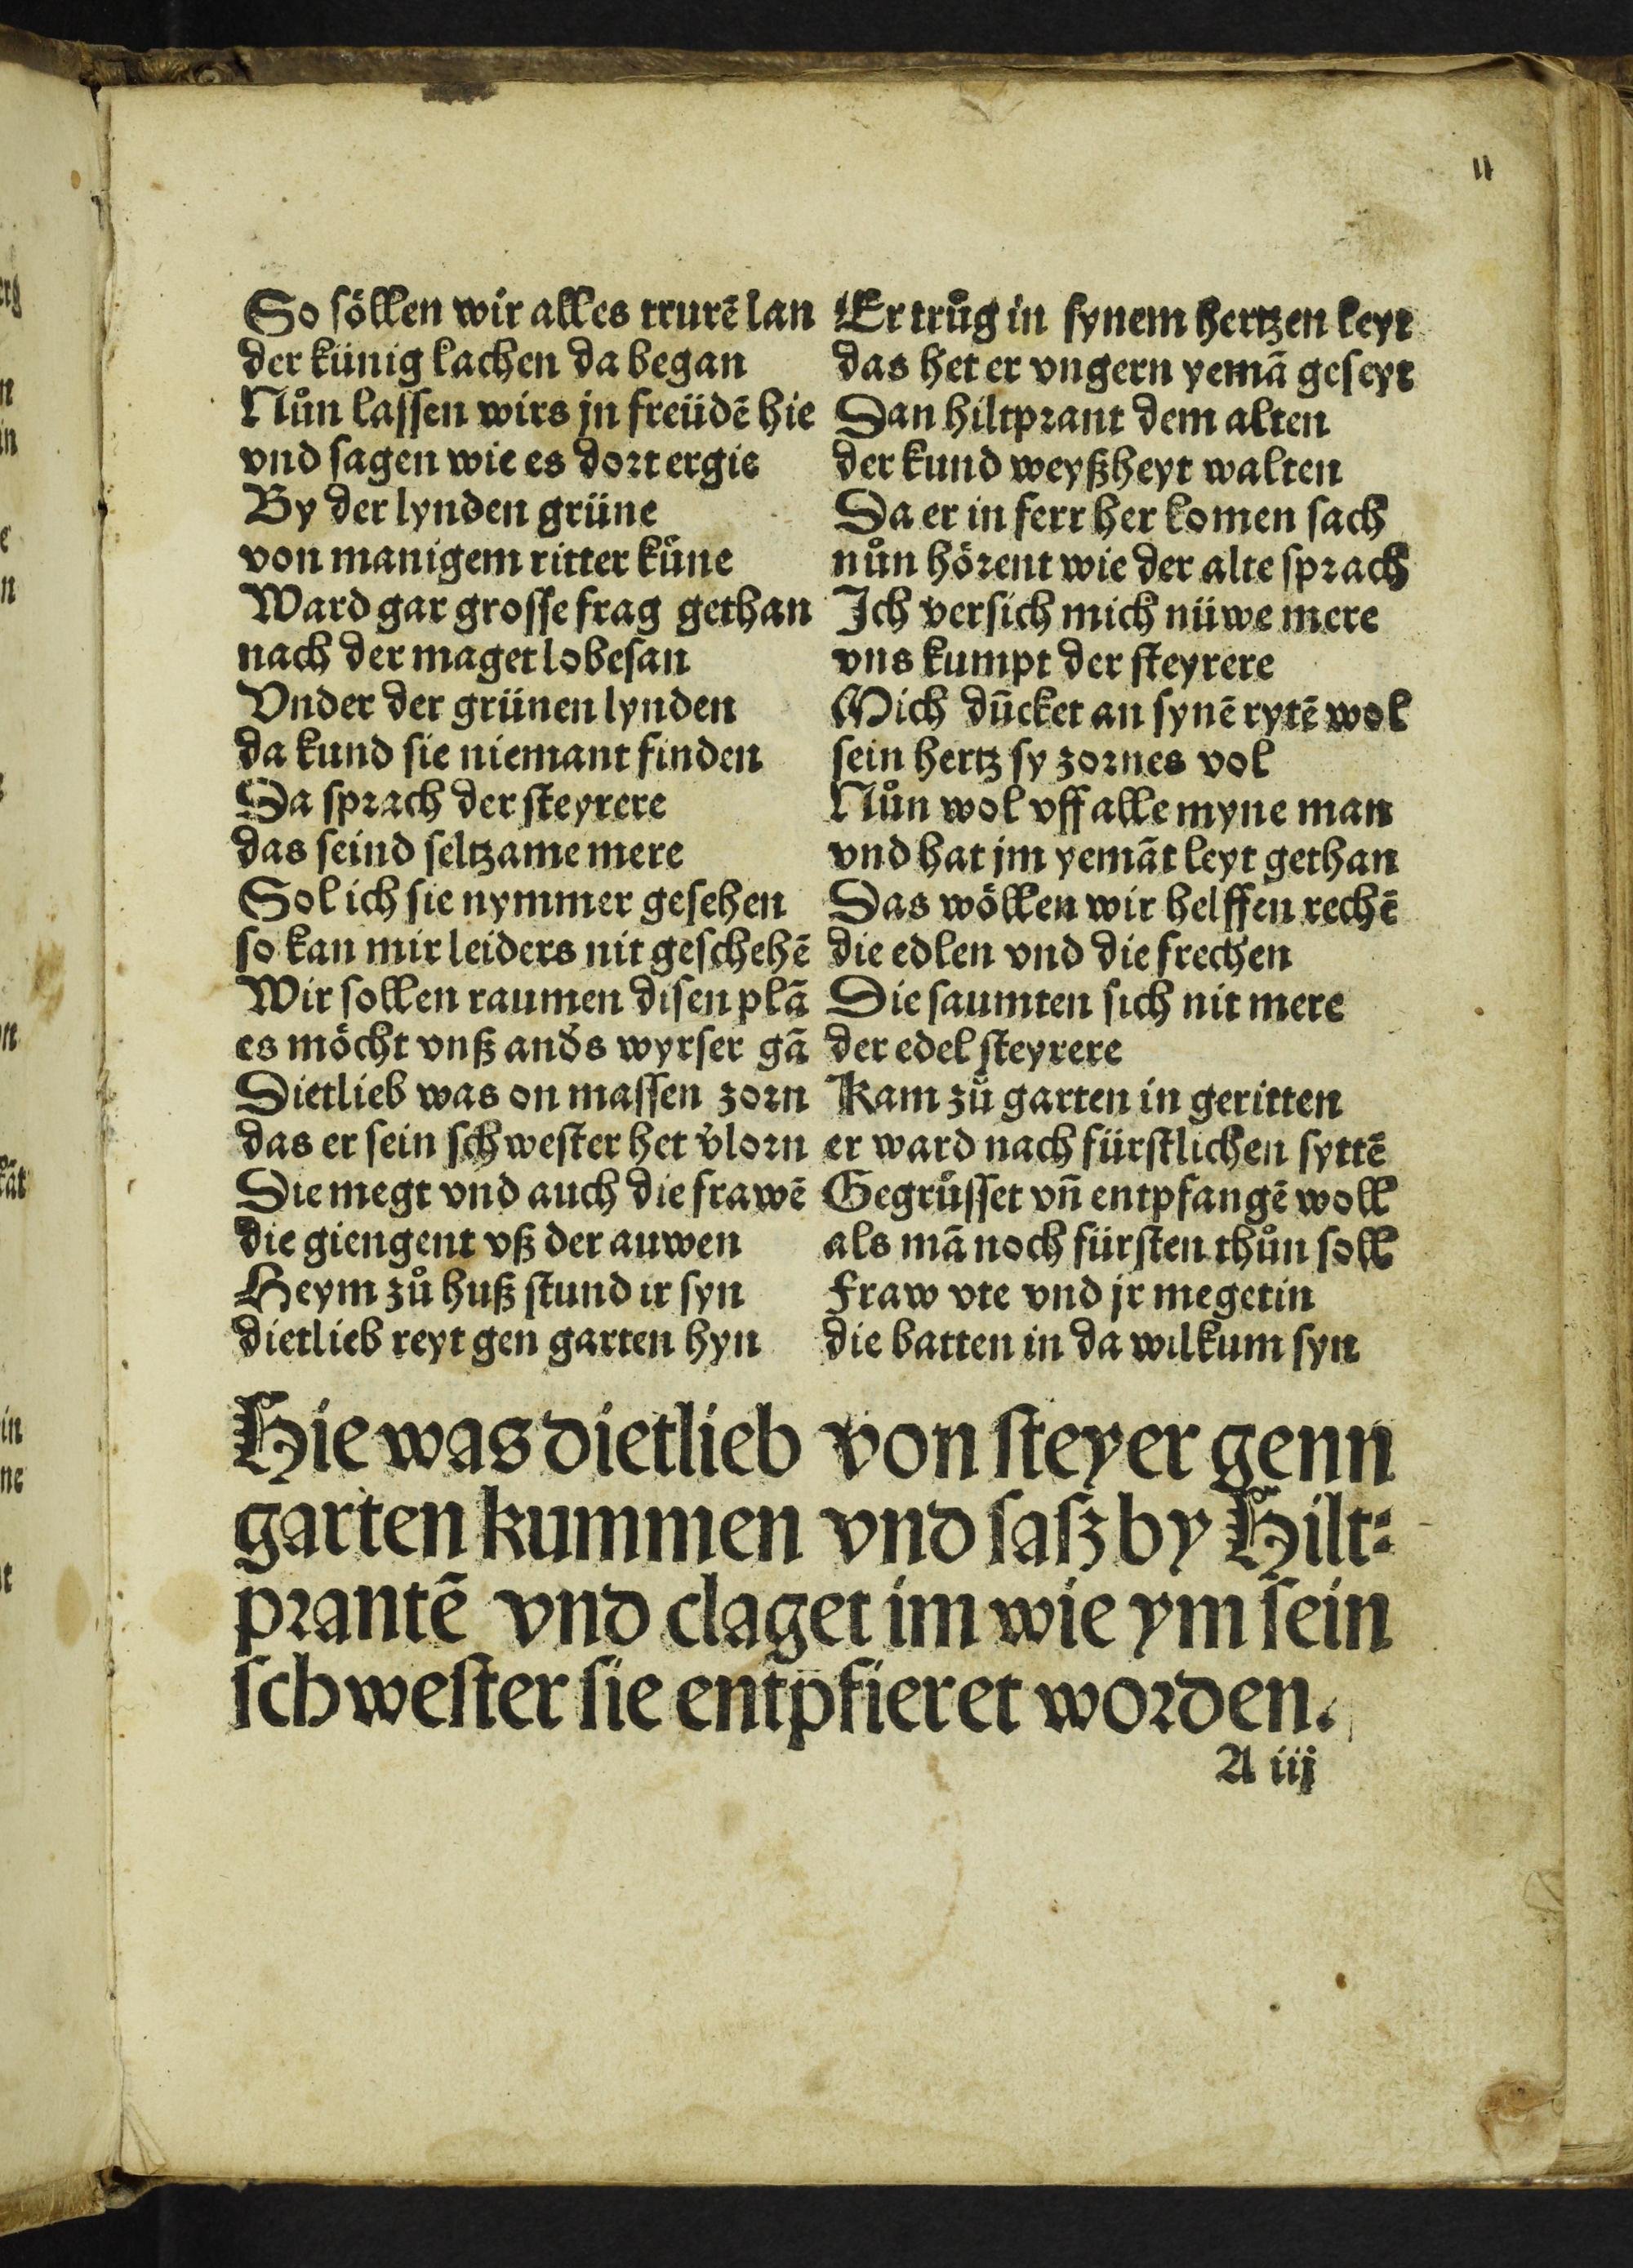 11
So söllen wir alles trurē lan
der künig lachen da began
Nůn lassen wirs jn freüdē hie
vnd sagen wie es dort ergie
By der lynden grüne
von manigem ritter kůne
Ward gar grosse frag gethan
nach der maget lobesan
Vnder der grünen lynden
da kund sie niemant finden
Da sprach der steyrere
das seind seltzame mere
Sol ich sie nymmer gesehen
so kan mir leiders nit geschehē
Wir sollen raumen disen plā
es möcht vnß and's wyrser gā
Dietlieb was on massen zorn
das er sein schwester het v̉lorn
Die megt vnd auch die frawē
die giengent vß der auwen
Heym zů huß stund ir syn
dietlieb reyt gen garten hyn
Er trůg in synem hertzen leyt
das het er vngern yemā geseyt
Dan hiltprant dem alten
der kund weyßheyt walten
Da er in ferr her komen sach
nůn hörent wie der alte sprach
Ich versich mich nüwe mere
vns kumpt der steyrere
Mich dūcket an synē rytē wol
sein hertz sy zornes vol
Nůn wol vff alle myne man
vnd hat jm yemāt leyt gethan
Das wöllen wir helffen rechē
die edlen vnd die frechen
Die saumten sich nit mere
der edel steyrere
Kam zů garten in geritten
er ward nach fürstlichen syttē
Gegrůsset vn̄ entpfangē woll
als mā noch fürsten thůn soll
Fraw vte vnd jr megetin
die batten in da wilkum syn
Hie was dietlieb von steyer genn
garten kummen vnd saß by Hilt⸗
prantē vnd claget im wie ym sein
schwester sie entpfieret worden.
A iij